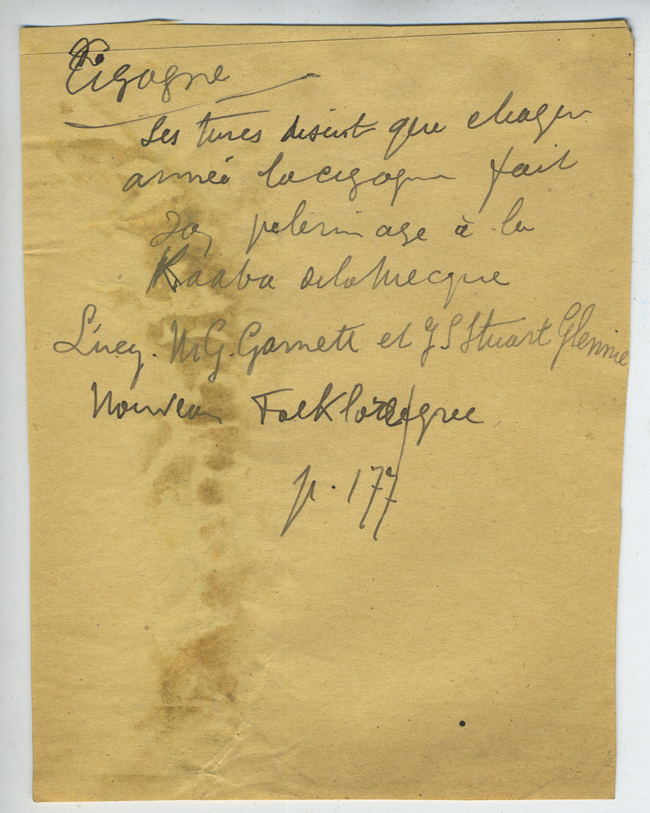 Cigogne
Les turcs disent que chaque
année la cigogne fait
son pelerinage à la
Kaaba de la Mecque
Lucy. M G. Garnett et J S Stuart Glennie
Nouveau Folklore grec
p. 177